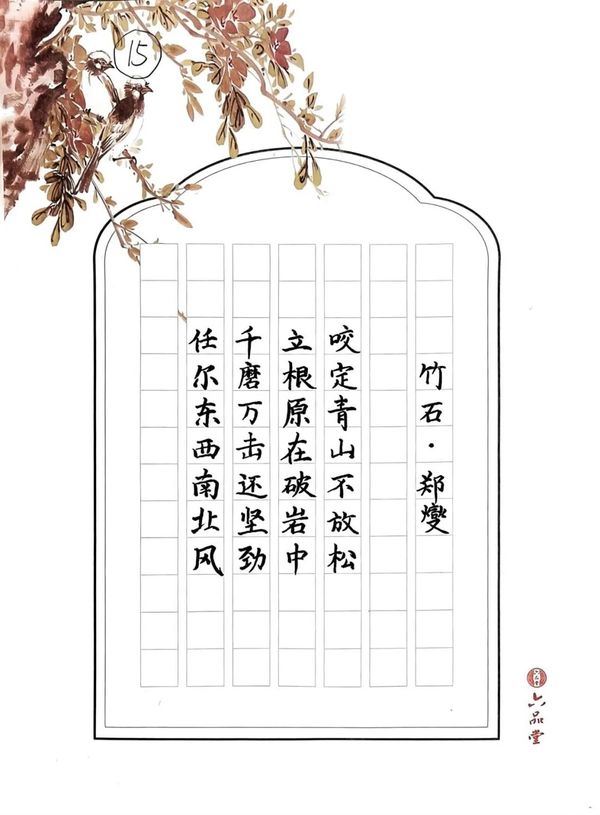 15
竹石·郑燮
咬定青山不放松
立根原在破岩中
千磨万击还坚劲
任尔东西南北风
六品堂